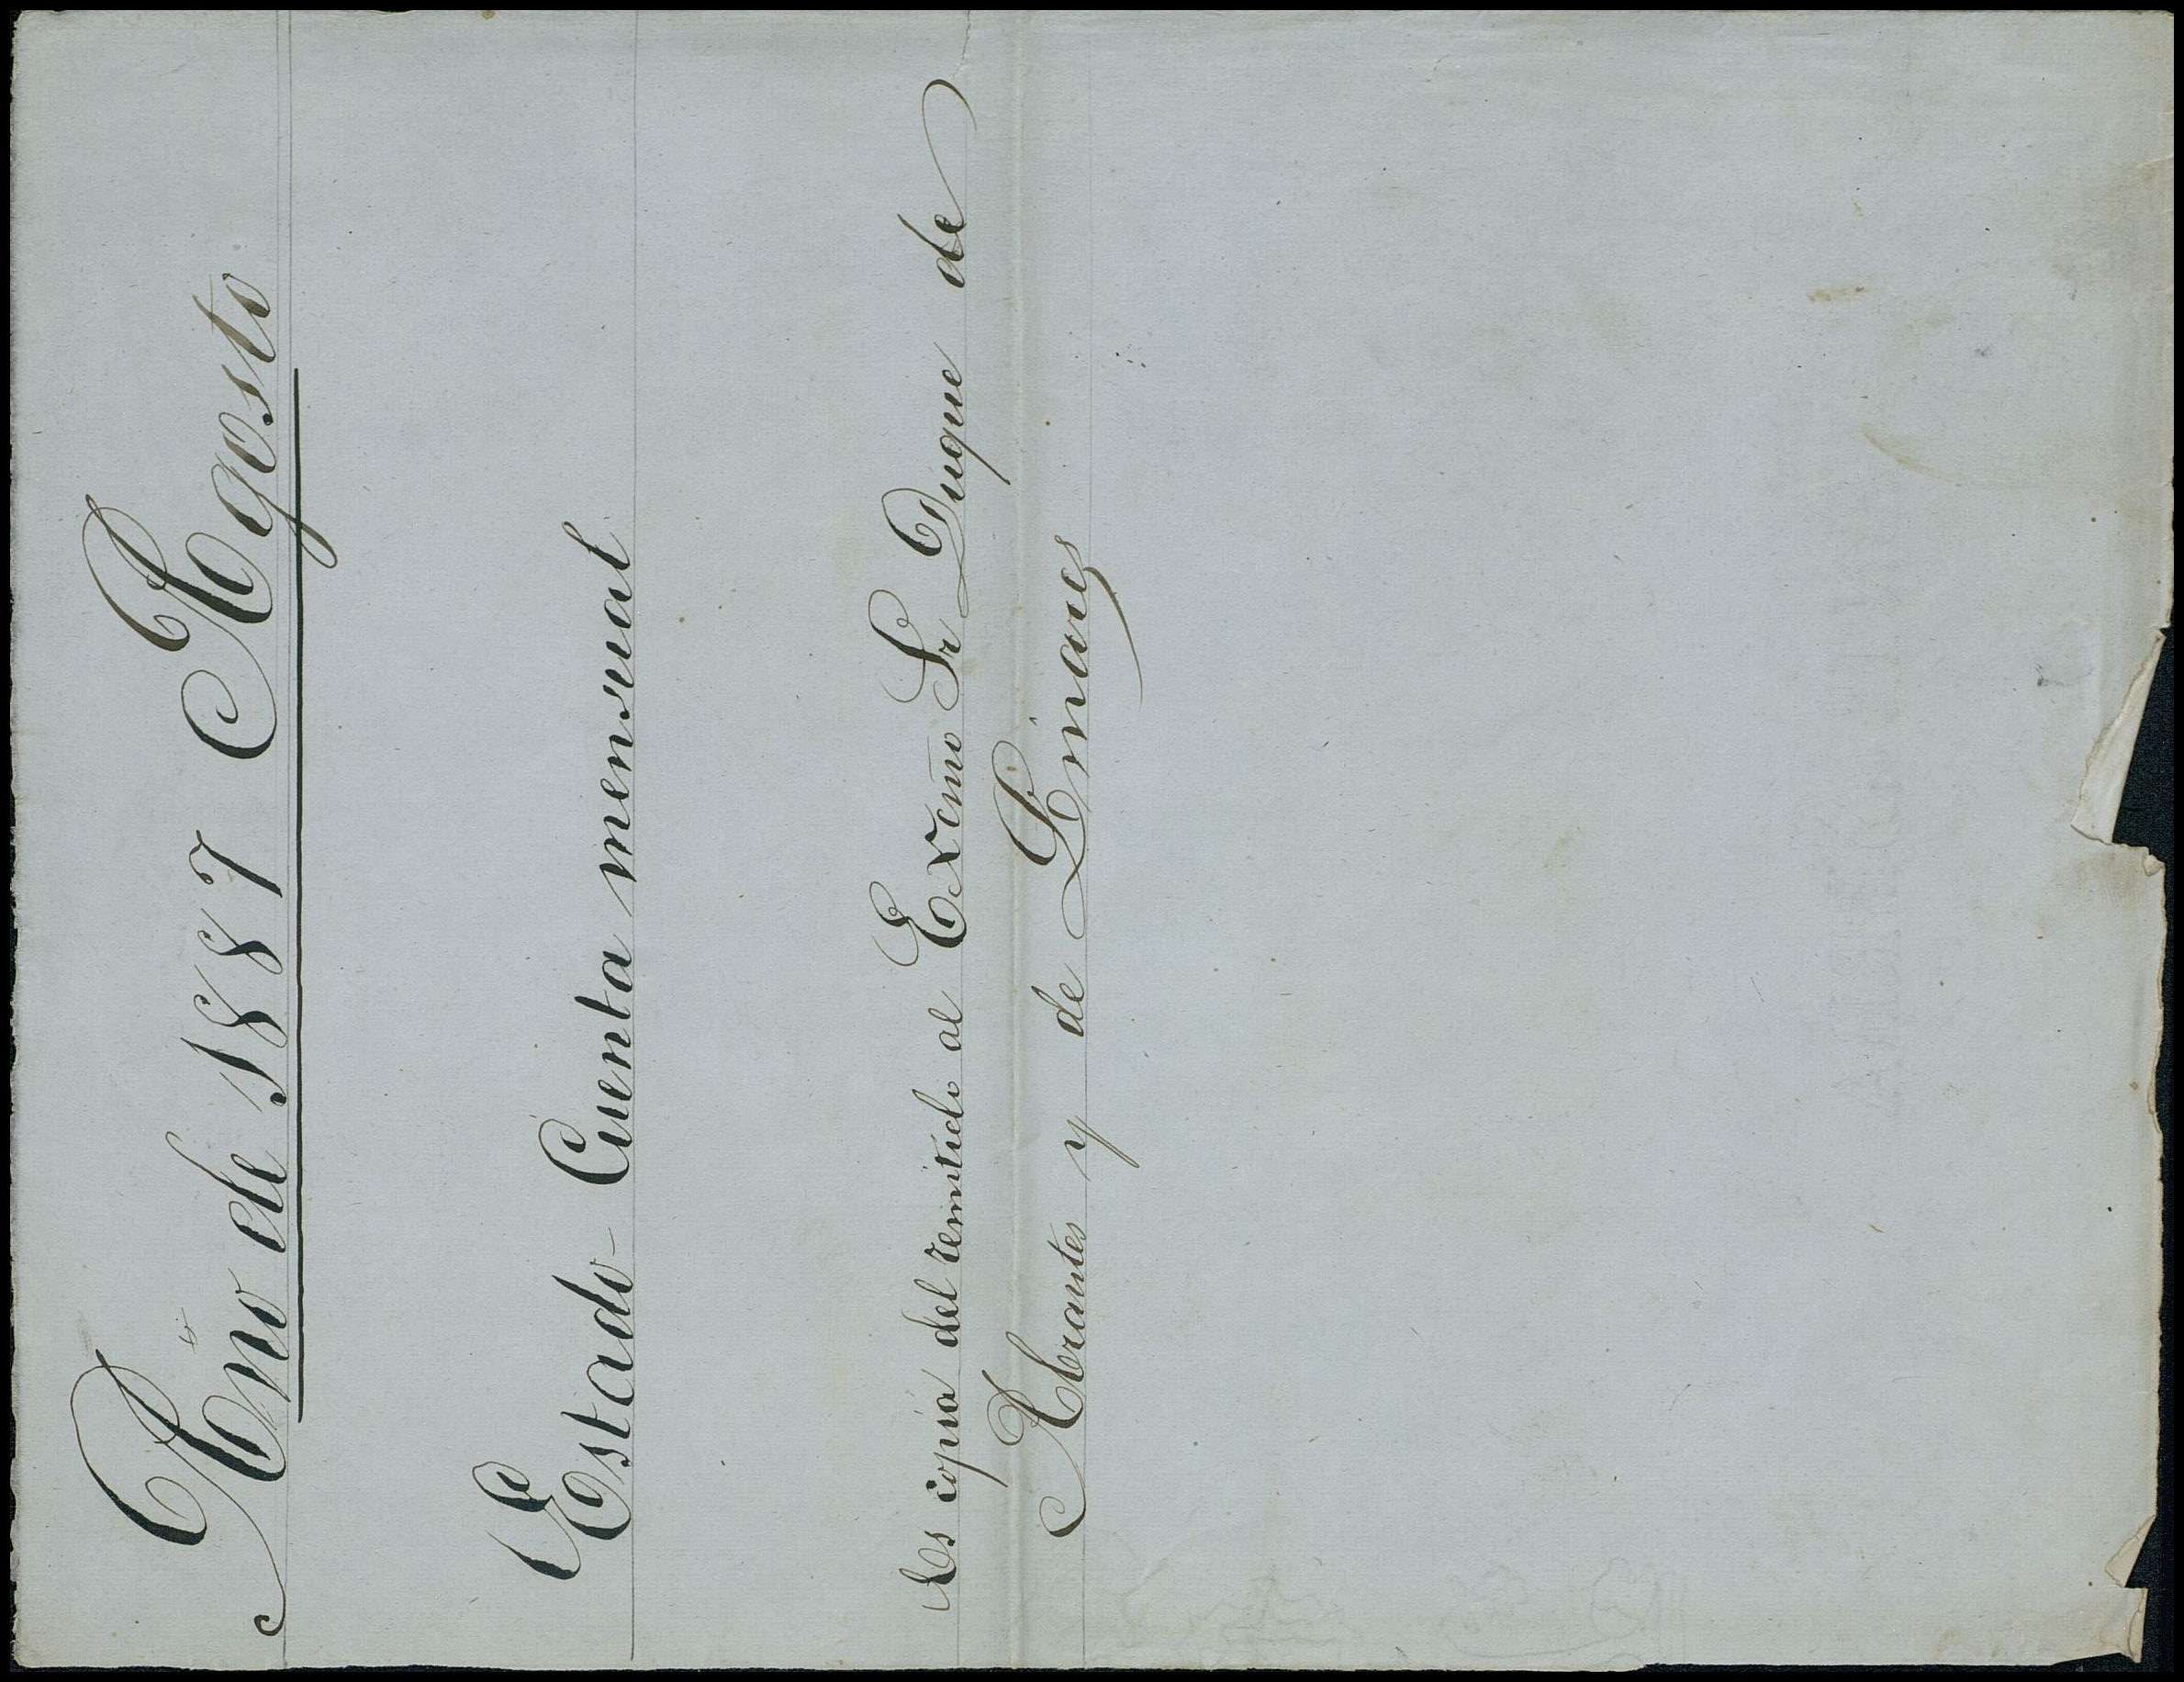 Año de 1887 Agosto
Estado-Cuenta mensual
Es copia del remitido al Excmo Sr Duque de
Abrantes y de Linares